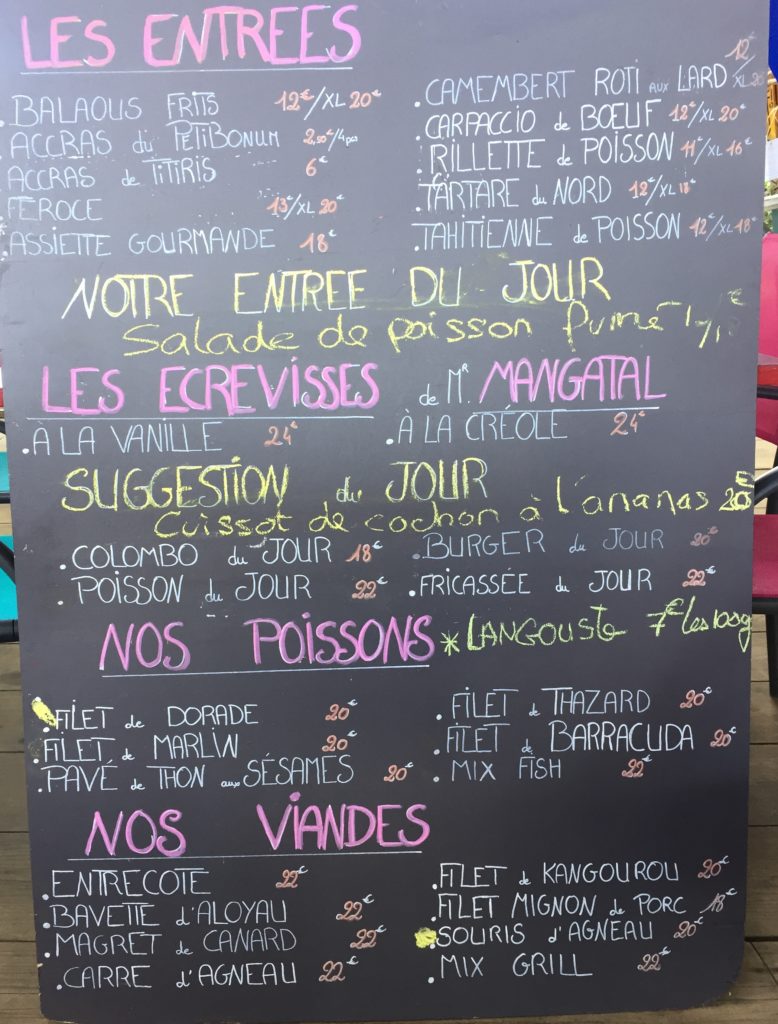 LES ENTREES
. BALAOUS FRITS 12€/XL 20€
. ACCRAS du PETIBONUM 2,50€/4pcs
ACCRAS de TITIRIS 6€
FEROCE 13€/XL 20€
. ASSIETTE GOURMANDE 18€
. CAMEMBERT ROTI aux LARD 12€/XL 20
. CARPACCIO de BŒUF 12€/XL 20€
. RILLETTE de POISSON 11€/XL 16€
. TARTARE du NORD 12€/XL 18€
. TAHITIENNE de POISSON 12€/XL 18€
NOTRE ENTREE DU JOUR
Salade de poisson fumé
LES ECREVISSES de MR. MANGATAL
. À LA VANILLE 24€
. À LA CRÉOLE 24€
SUGGESTION du JOUR
Cuissot de cochon à l'ananas 20€
. COLOMBO du JOUR 18€
. POISSON du JOUR 22€
. BURGER du JOUR 20€
. FRICASSÉE du JOUR 22€
NOS POISSONS
* LANGOUSTE 7€ les 100g
. FILET de DORADE 20€
. FILET de MARLIN 20€
. PAVÉ de THON aux SÉSAMES 20€
. FILET de THAZARD 20€
. FILET de BARRACUDA 20€
. MIX FISH 22€
NOS VIANDES
. ENTRECOTE 22€
. BAVETTE d'ALOYAU 22€
. MAGRET de CANARD 22€
. CARRE d'AGNEAU 22€
. FILET de KANGOUROU 20€
. FILET MIGNON de PORC 18€
. SOURIS d'AGNEAU 20€
. MIX GRILL 22€